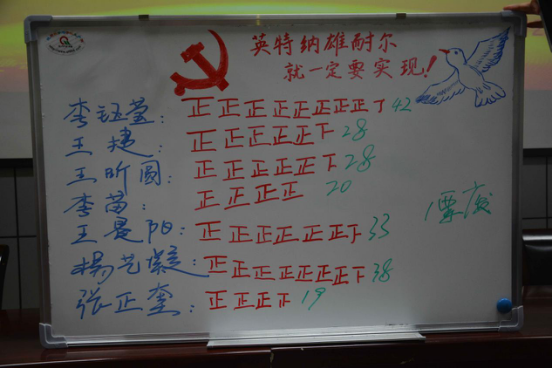 英特纳雄耐尔
就一定要实现!
李钰莹: 正正正正正正正正丁 42
王捷: 正正正正正下 28
王昕圆: 正正正正正下 28
李苗: 正正正正 20
王景阳: 正正正正正正下 33
杨艺凝: 正正正正正正正下 38
张正奎: 正正正正 19
1票废